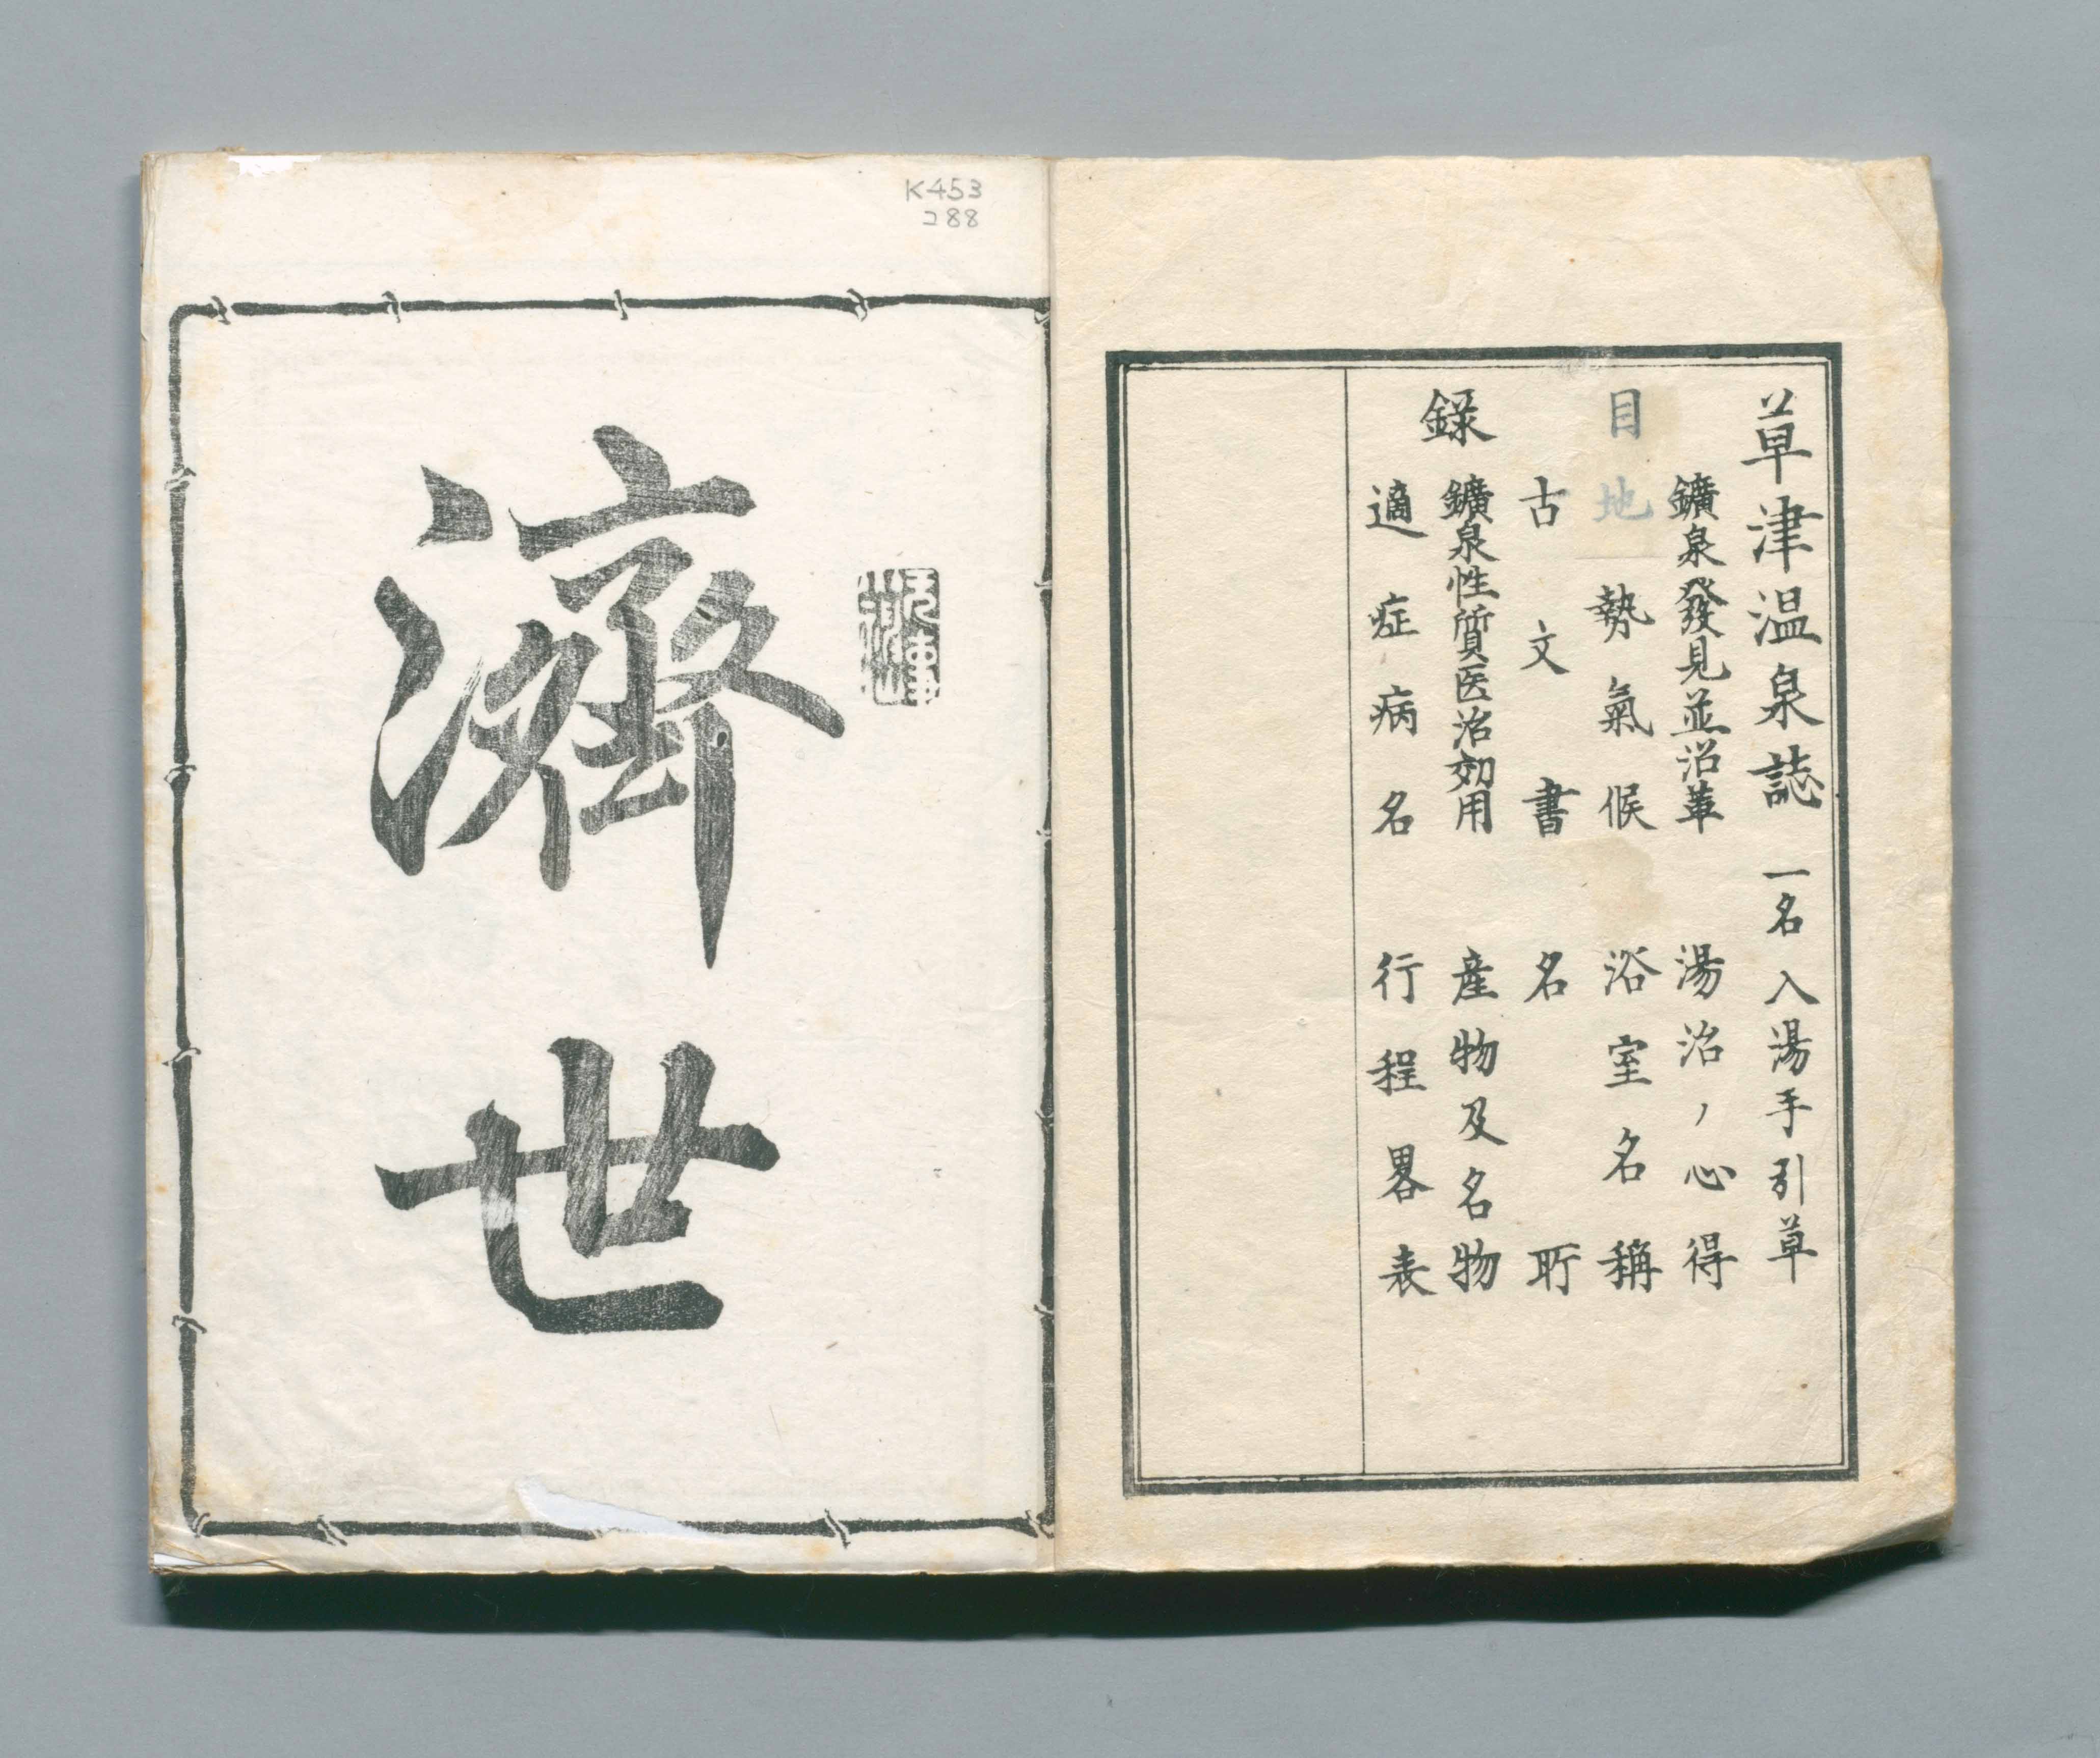 草津温泉誌 一名入湯手引草
目録
鑛泉發見並沿革 湯治ノ心得
地勢氣候 浴室名稱
古文書 名所
鑛泉性質医治効用 産物及名物
適症病名 行程畧表
K453
288
濟世